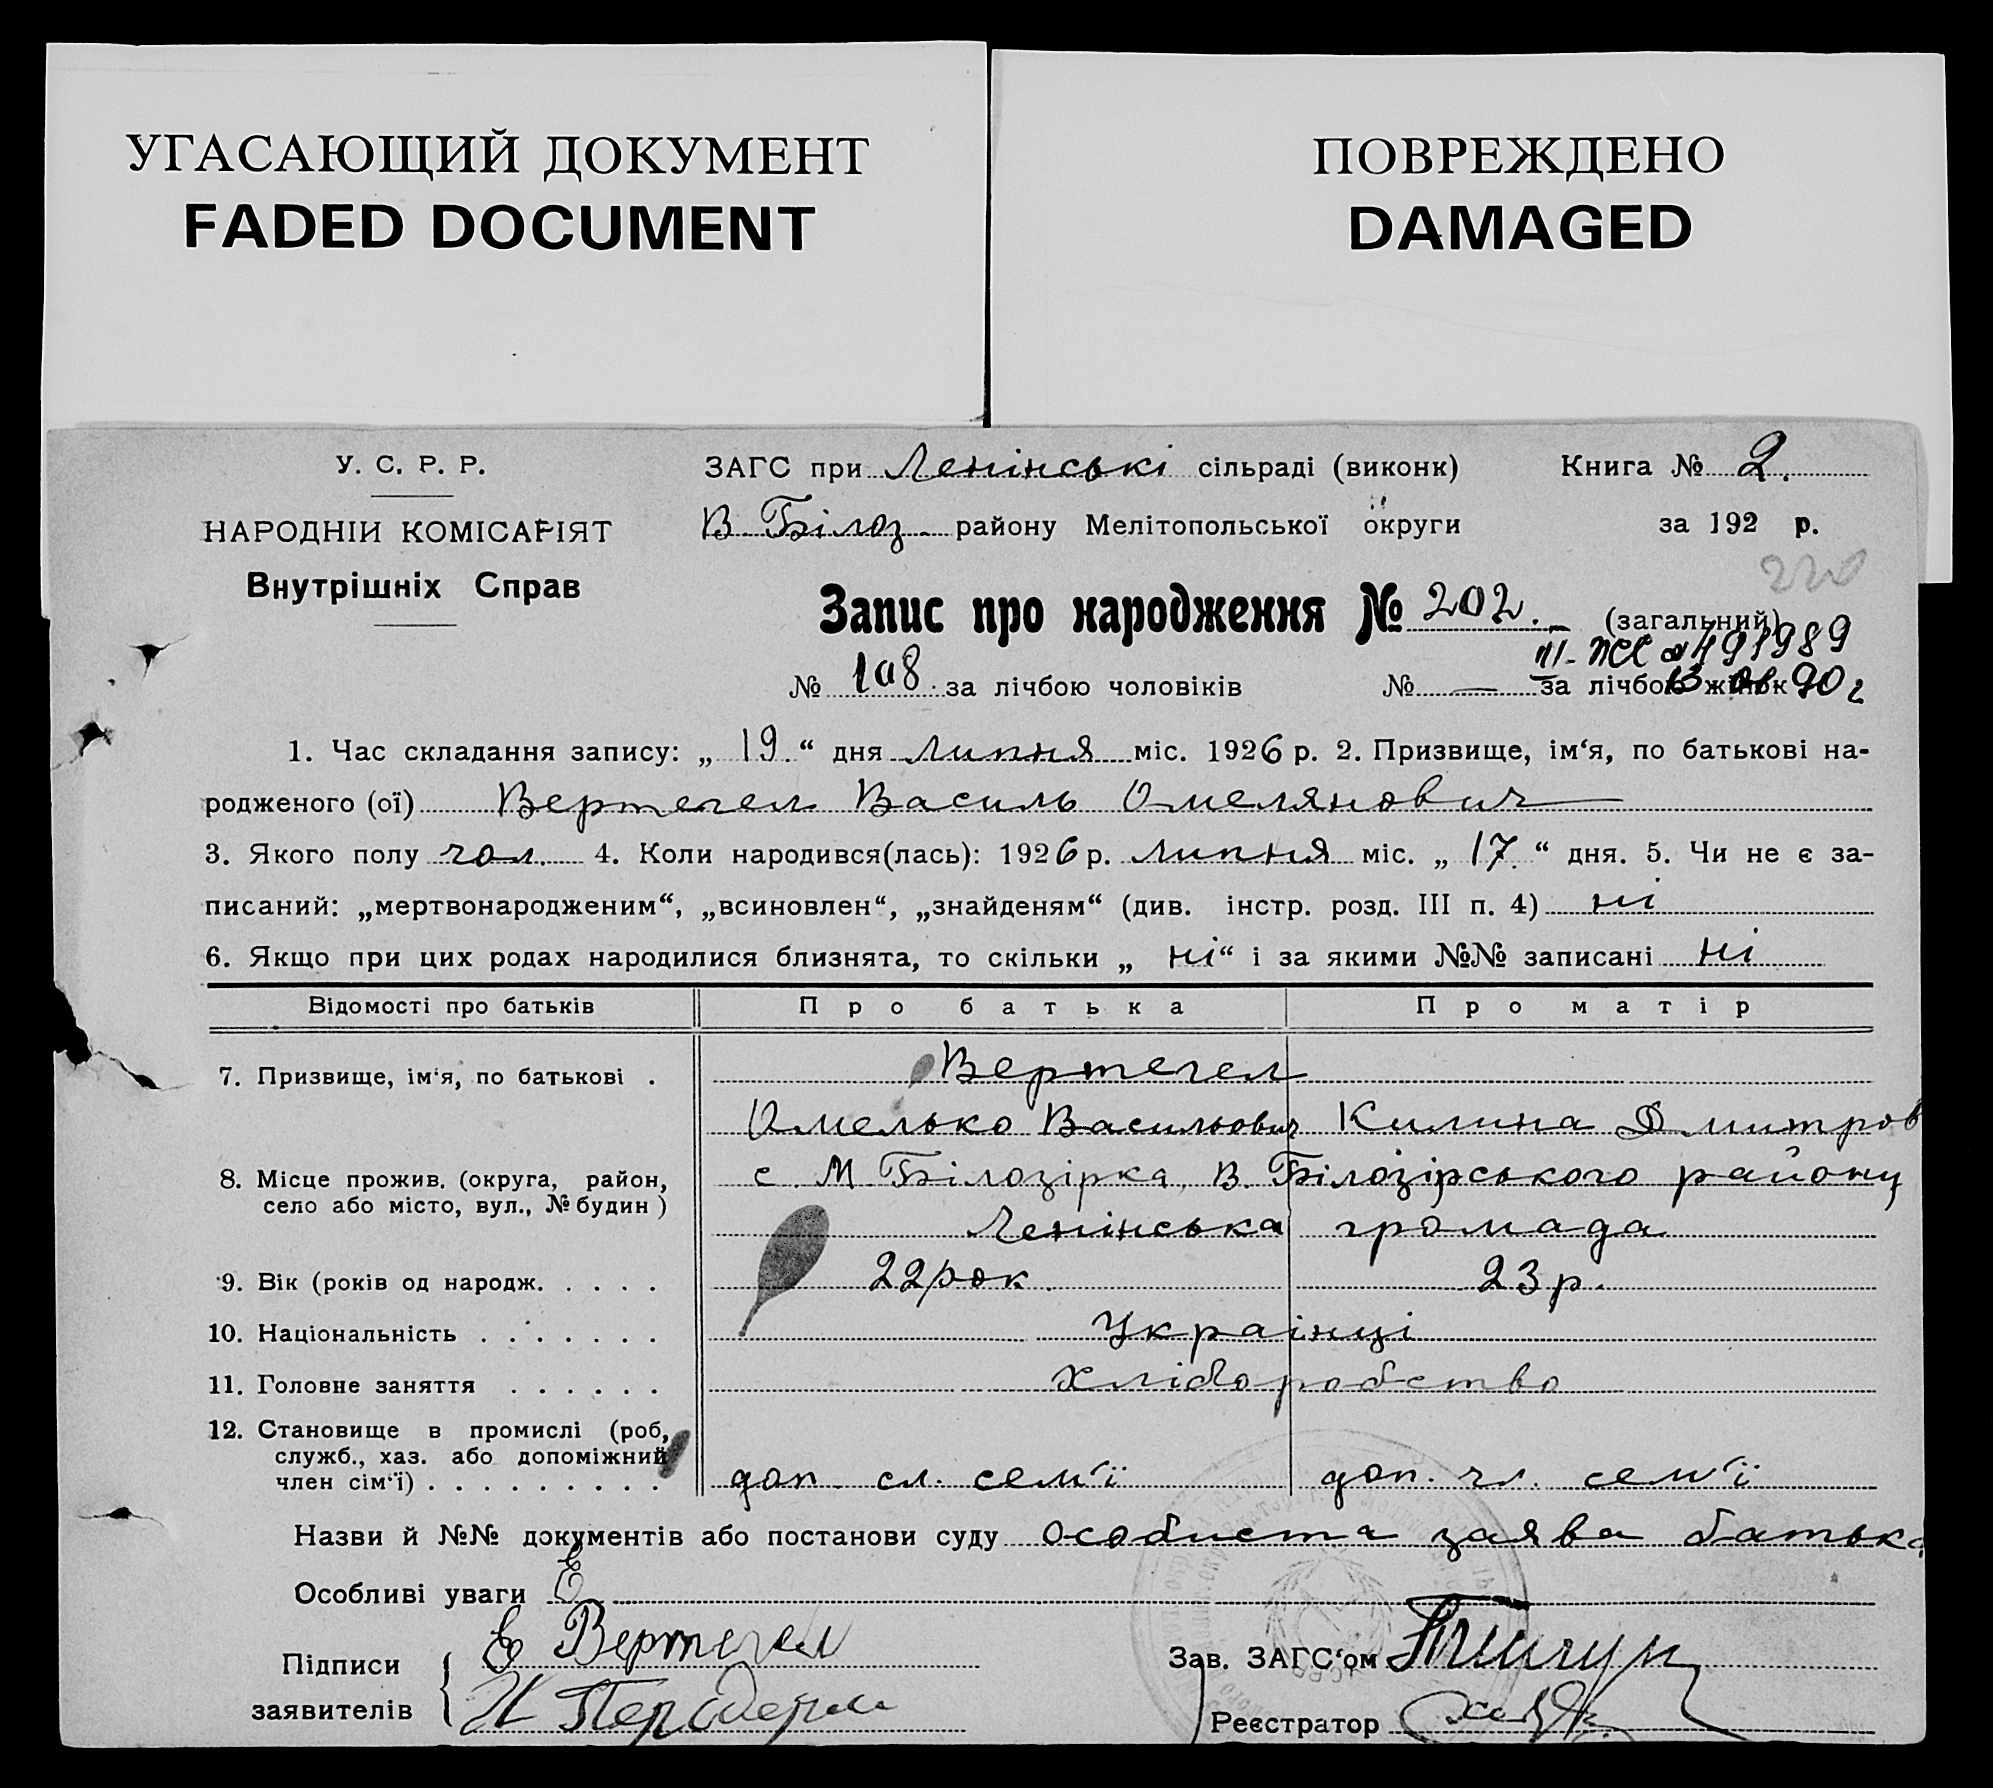 УГАСАЮЩИЙ ДОКУМЕНТ
FADED DOCUMENT
ПОВРЕЖДЕНО
DAMAGED
У. С. Р. Р.
НАРОДНІЙ КОМІСАРІЯТ
Внутрішніх Справ
ЗАГС при Ленінські сільраді (виконк)
Книга № 2.
В. Білоз. району Мелітопольської округи
за 192 р.
220
Запис про народження № 202. (загальний)
№ 108. за лічбою чоловіків № — за лічбою жінок
1. Час складання запису: „ 19 “ дня Липня міс. 1926 р. 2. Призвище, ім‘я, по батькові на-
родженого (ої) Вертегел Василь Омелянович
3. Якого полу чол. 4. Коли народився(лась): 1926 р. Липня міс. „ 17. “ дня. 5. Чи не є за-
писаний: „мертвонародженим“, „всиновлен“, „знайденям“ (див. інстр. розд. III п. 4) ні
6. Якщо при цих родах народилися близнята, то скільки „ ні “ і за якими №№ записані ні
Відомості про батьків Про батька Про матір
7. Призвище, ім‘я, по батькові . Вертегел
Омелько Васильович Килина Дмитров
8. Місце прожив. (округа, район, с. М Білозірка, В. Білозірського району
село або місто, вул., № будин ) Ленінська громада
9. Вік (років од народж. . . . . 22 рок 23 р.
10. Національність . . . . . . . Українці
11. Головне заняття . . . . . . Хліборобство
12. Становище в промислі (роб,
служб., хаз. або допоміжний
член сім‘ї) . . . . . . . . . доп. сл. сем‘ї доп. чл. сем‘ї
Назви й №№ документів або постанови суду Особиста заява батька
Особливі уваги
Підписи Е Вертегел
заявителів
Зав. ЗАГС‘ом
Реєстратор